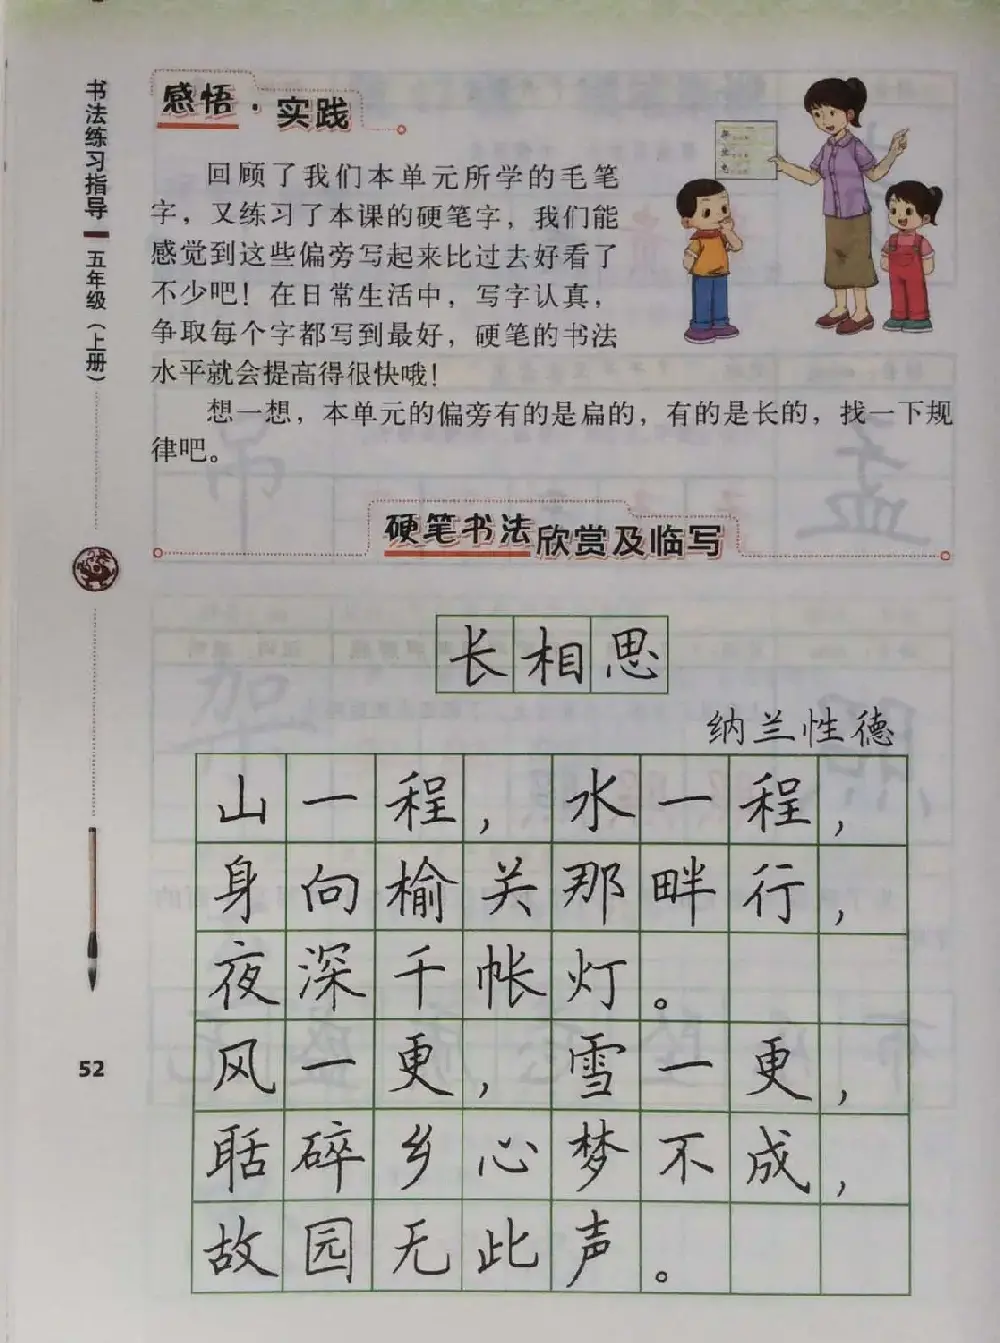 书法练习指导 五年级（上册）
感悟·实践
回顾了我们本单元所学的毛笔
字，又练习了本课的硬笔字，我们能
感觉到这些偏旁写起来比过去好看了
不少吧！在日常生活中，写字认真，
争取每个字都写到最好，硬笔的书法
水平就会提高得很快哦！
想一想，本单元的偏旁有的是扁的，有的是长的，找一下规
律吧。
硬笔书法欣赏及临写
长相思
纳兰性德
山一程，水一程，
身向榆关那畔行，
夜深千帐灯。
风一更，雪一更，
聒碎乡心梦不成，
故园无此声。
52